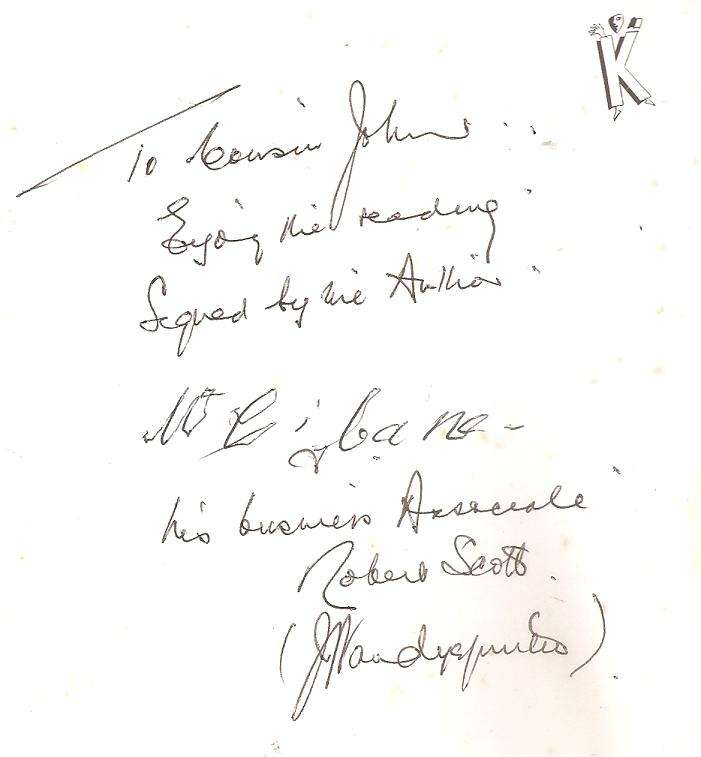 K
To Cousin John
Enjoy the reading
Signed by the Author
Mr
his business Associate
Robert Scott.